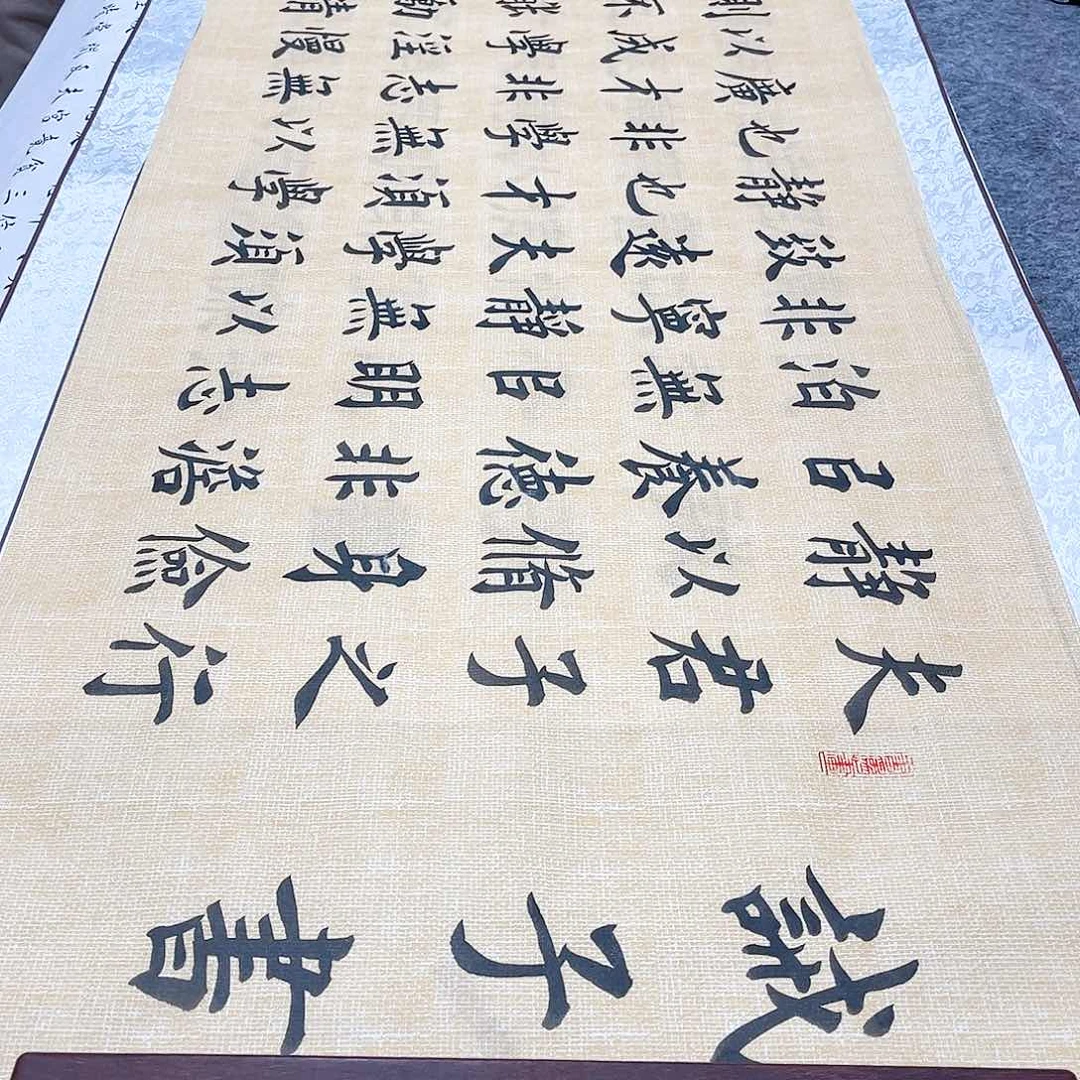 誡子書
夫君子之行
靜以脩身儉
㠯養德非澹
泊無㠯明志
非寧靜無以
致遠夫學須
靜也才須學
也非學無以
廣才非志無
以成學淫慢
則不能勵精